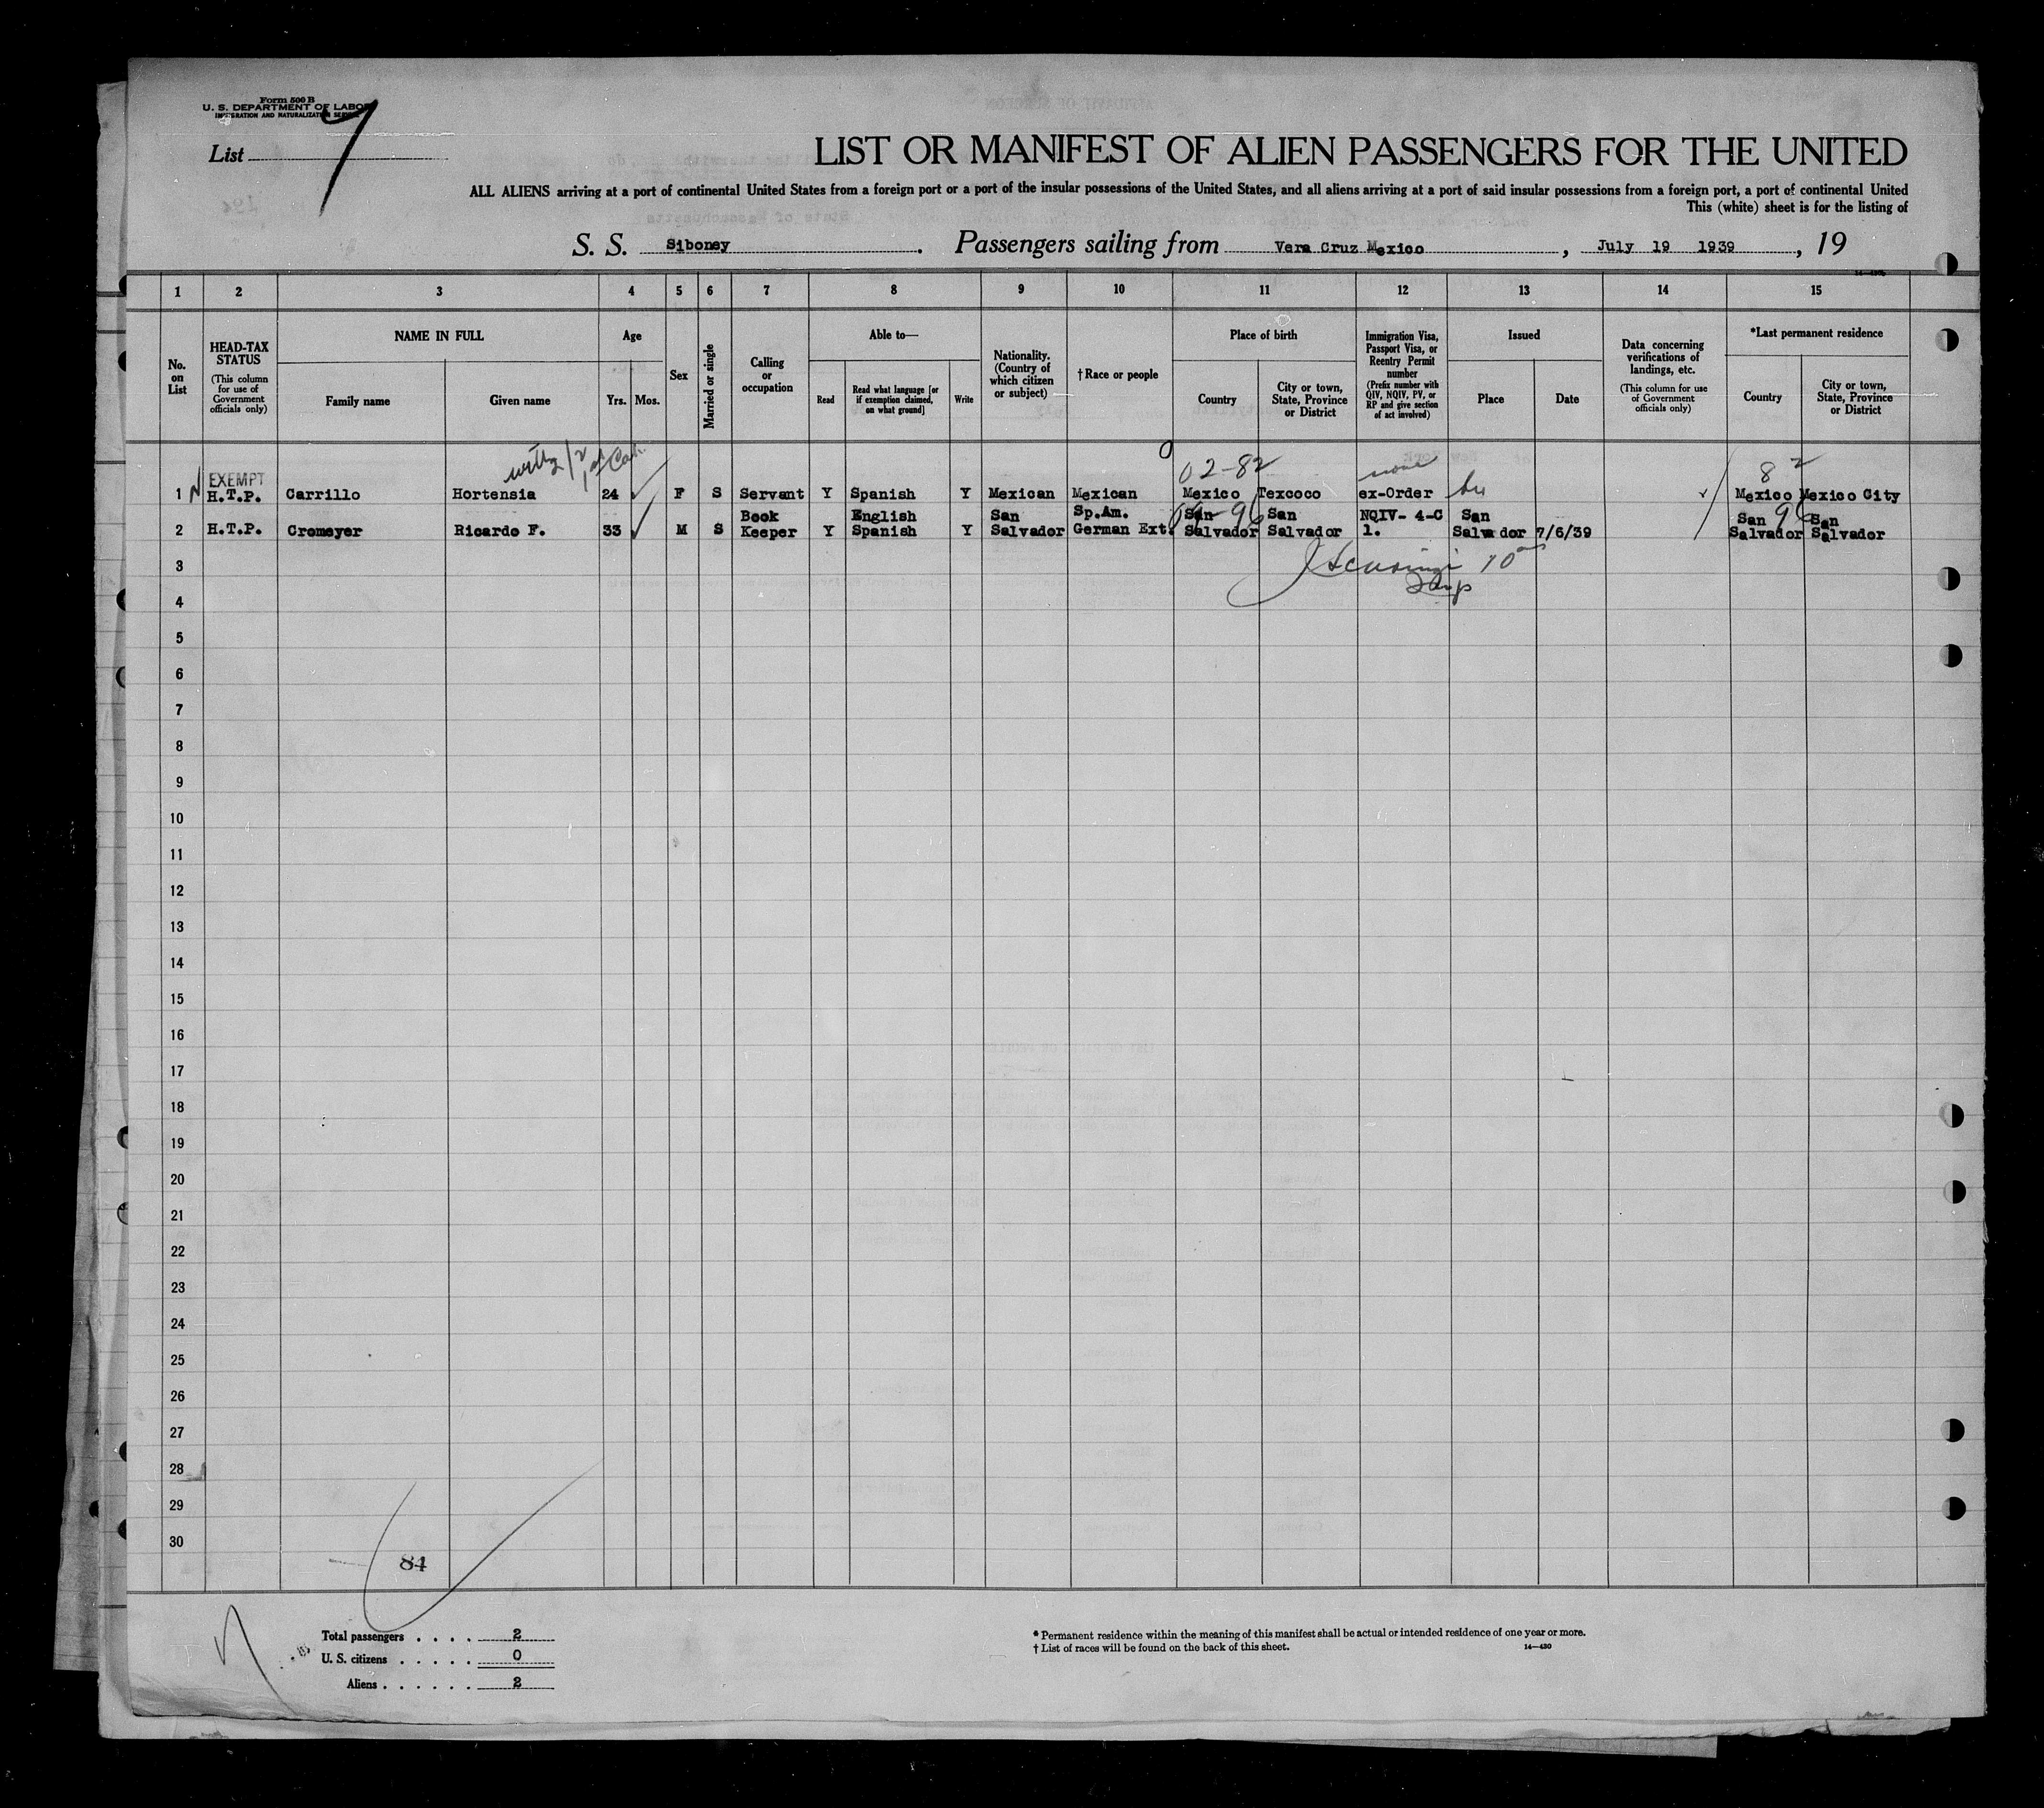 Form 500 B
U. S. DEPARTMENT OF LABOR
IMMIGRATION AND NATURALIZATION SERVICE
List 7
LIST OR MANIFEST OF ALIEN PASSENGERS FOR THE UNITED
ALL ALIENS arriving at a port of continental United States from a foreign port or a port of the insular possessions of the United States, and all aliens arriving at a port of said insular possessions from a foreign port, a port of continental United
This (white) sheet is for the listing of
S. S. Siboney. Passengers sailing from Vera Cruz Mexico, July 19 1939, 19
1 2 3 4 5 6 7 8 9 10 11 12 13 14 15
No. on List
HEAD-TAX STATUS
(This column for use of Government officials only)
NAME IN FULL
Family name
Given name
Age
Yrs. Mos.
Sex
Married or single
Calling or occupation
Able to—
Read
Read what language [or if exemption claimed, on what ground]
Write
Nationality. (Country of which citizen or subject)
†Race or people
Place of birth
Country
City or town, State, Province or District
Immigration Visa, Passport Visa, or Reentry Permit number
(Prefix number with QIV, NQIV, PV, or RP and give section of act involved)
Issued
Place
Date
Data concerning verifications of landings, etc.
(This column for use of Government officials only)
*Last permanent residence
Country
City or town, State, Province or District
with 2/2 1st Cab.
02-82 none 8 2
EXEMPT
1 H.T.P. Carrillo Hortensia 24 F S Servant Y Spanish Y Mexican Mexican Mexico Texcoco ex-Order Mexico Mexico City
Book English San Sp.Am. San 96 San NQIV- 4-C San San 96 San
2 H.T.P. Cromeyer Ricardo F. 33 M S Keeper Y Spanish Y Salvador German Ext. Salvador Salvador 1. Salvador 7/6/39 Salvador Salvador
3
4
5
6
7
8
9
10
11
12
13
14
15
16
17
18
19
20
21
22
23
24
25
26
27
28
29
30
84
Total passengers . . . . 2
U. S. citizens . . . . . 0
Aliens . . . . . . 2
* Permanent residence within the meaning of this manifest shall be actual or intended residence of one year or more.
† List of races will be found on the back of this sheet. 14—430